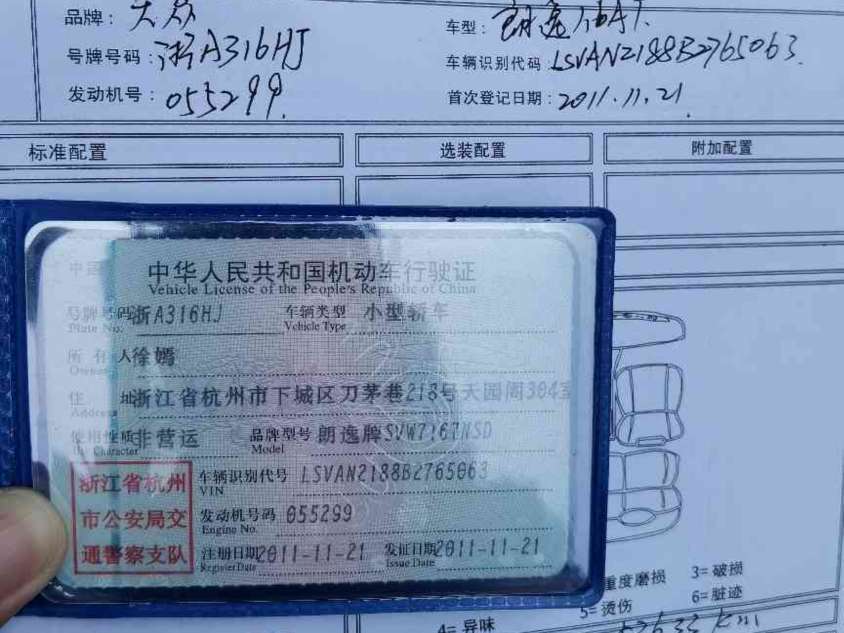 品牌：大众 车型：朗逸 1.6AT
号牌号码：浙A316HJ 车辆识别代码：LSVAN2188B2765063
发动机号：055299 首次登记日期：2011.11.21
标准配置 选装配置 附加配置
中华人民共和国机动车行驶证
Vehicle License of the People's Republic of China
号牌号码 浙A316HJ 车辆类型 小型轿车
Plate No. Vehicle Type
所有人 徐嫣
Owner
住址 浙江省杭州市下城区刀茅巷218号天园阁304室
Address
使用性质 非营运 品牌型号 朗逸牌SVW7167NSD
Use Character Model
浙江省杭州 车辆识别代号 LSVAN2188B2765063
VIN
市公安局交 发动机号码 055299
Engine No.
通警察支队 注册日期 2011-11-21 发证日期 2011-11-21
Register Date Issue Date
重度磨损 3=破损
5=烫伤 6=脏迹
4=异味